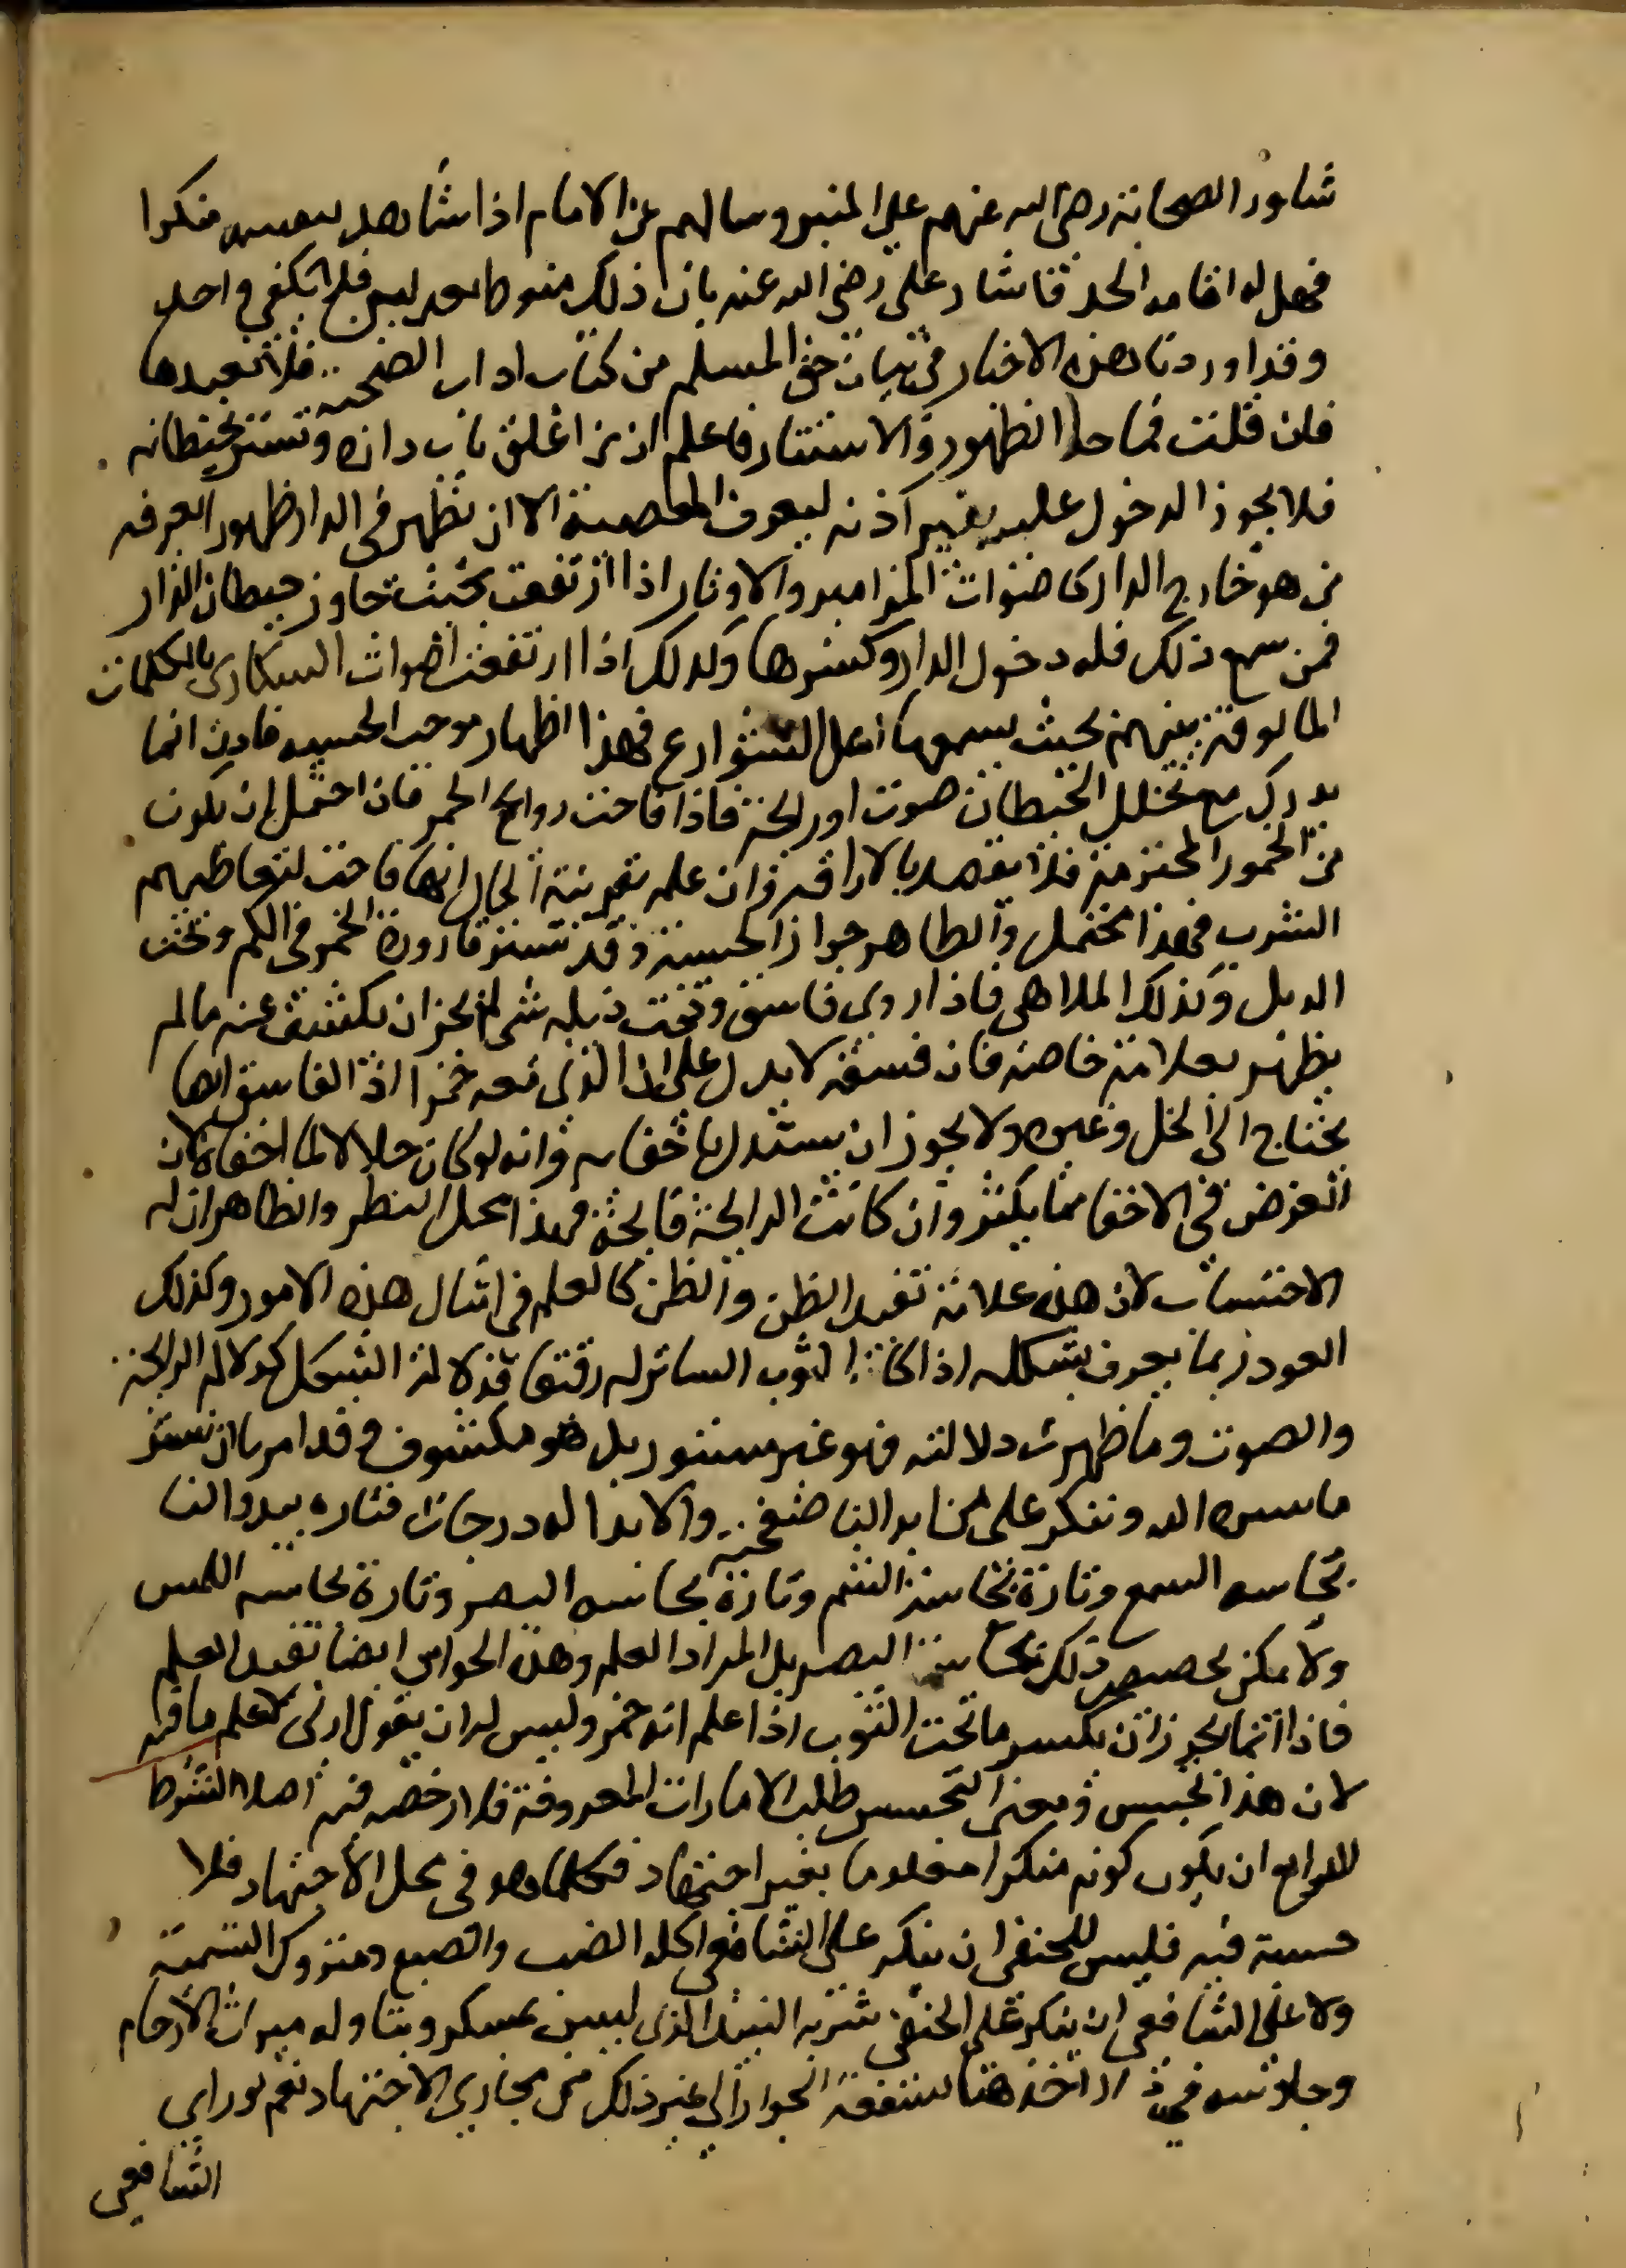 شاور الصحابة رضى الله عنهم على المنبر وسالهم عن الامام اذا شاهد بنفسه منكرا
فهل له اقامة الحد فاشار على رضى الله عنه بان ذلك منوط بعدلين فلا يكفي واحد
وقد اوردنا هذه الاخبار في بيان حق المسلم من كتاب اداب الصحبة فلا نعيدها
فان قلت فما حد الظهور والاستتار فاعلم ان من اغلق باب داره وتستر بحيطانه
فلا يجوز الدخول عليه بغير اذنه ليعرف المعصية الا ان تظهر في الدار ظهورا يعرفه
من هو خارج الدار كاصوات المزامير والاوتار اذا ارتفعت بحيث جاوز حيطان الدار
فمن سمع ذلك فله دخول الدار وكسرها وكذلك اذا ارتفعت اصوات السكارى بالكلمات
المالوفة بينهم بحيث يسمعها اهل الشوارع فهذا اظهار موجب الحسبة فاذن انما
يدرك مع تخلل الحيطان صوت او رائحة فاذا فاحت روائح الخمر فان احتمل ان يكون
من الخمور المحترمة فلا يقصد بالاراقة وان علم بقرينة الحال انها فاحت لتعاطيهم
الشرب فهذا محتمل والظاهر جواز الحسبة وقد تستر قارورة الخمر في الكم وتحت
الذيل وكذلك الملاهى فاذا روى فاسق وتحت ذيله شى لم يجز ان يكشف عنه ما لم
يظهر بعلامة خاصة فان فسقه لا يدل على ان الذى معه خمرا اذ الفاسق ايضا
يحتاج الى الخل وغيره ولا يجوز ان يستدل باخفايه وانه لو كان حلالا لما اخفاه لان
الغرض في الاخفا مما يكثر وان كانت الرايحة فايحة فهذا محل النظر والظاهر ان له
الاحتساب لان هذه علامة تفيد الظن والظن كالعلم في امثال هذه الامور وكذلك
العود ربما يعرف بشكله اذا كان الثوب الساتر له رقيقا فدلالة الشكل كدلالة الرايحة
والصوت وما ظهرت دلالته فهو غير مستور بل هو مكشوف وقد امرنا ان نستر
ما ستره الله وننكر على من ابدا لنا صفحته والابدا له درجات فتاره يبدوا لنا
بحاسه السمع وتارة بحاسة الشم وتارة بحاسه البصر وتارة بحاسه اللمس
ولا يمكن تخصيص ذلك بحاسة البصر بل المراد العلم وهذه الحواس ايضا تفيد العلم
فاذا انما يجوز ان يكسر ما تحت الثوب اذا علم انه خمر وليس له ان يقول ارنى لاعلم ما فيه
لان هذا تجسس ومعنى التجسس طلب الامارات المعروفة فلا رخصة فيه اصلا الشرط
الرابع ان يكون كونه منكرا معلوما بغير اجتهاد فكلما هو في محل الاجتهاد فلا
حسبة فيه فليس للحنفى ان ينكر على الشافعى اكله الضب والضبع ومتروك التسمية
ولا على الشافعى ان ينكر على الحنفى شربه النبيذ الذى ليس بمسكر وتناوله ميراث الارحام
وجلوسه في دار اخذها بشفعة الجوار الى غير ذلك من مجارى الاجتهاد نعم لو راى
الشافعى